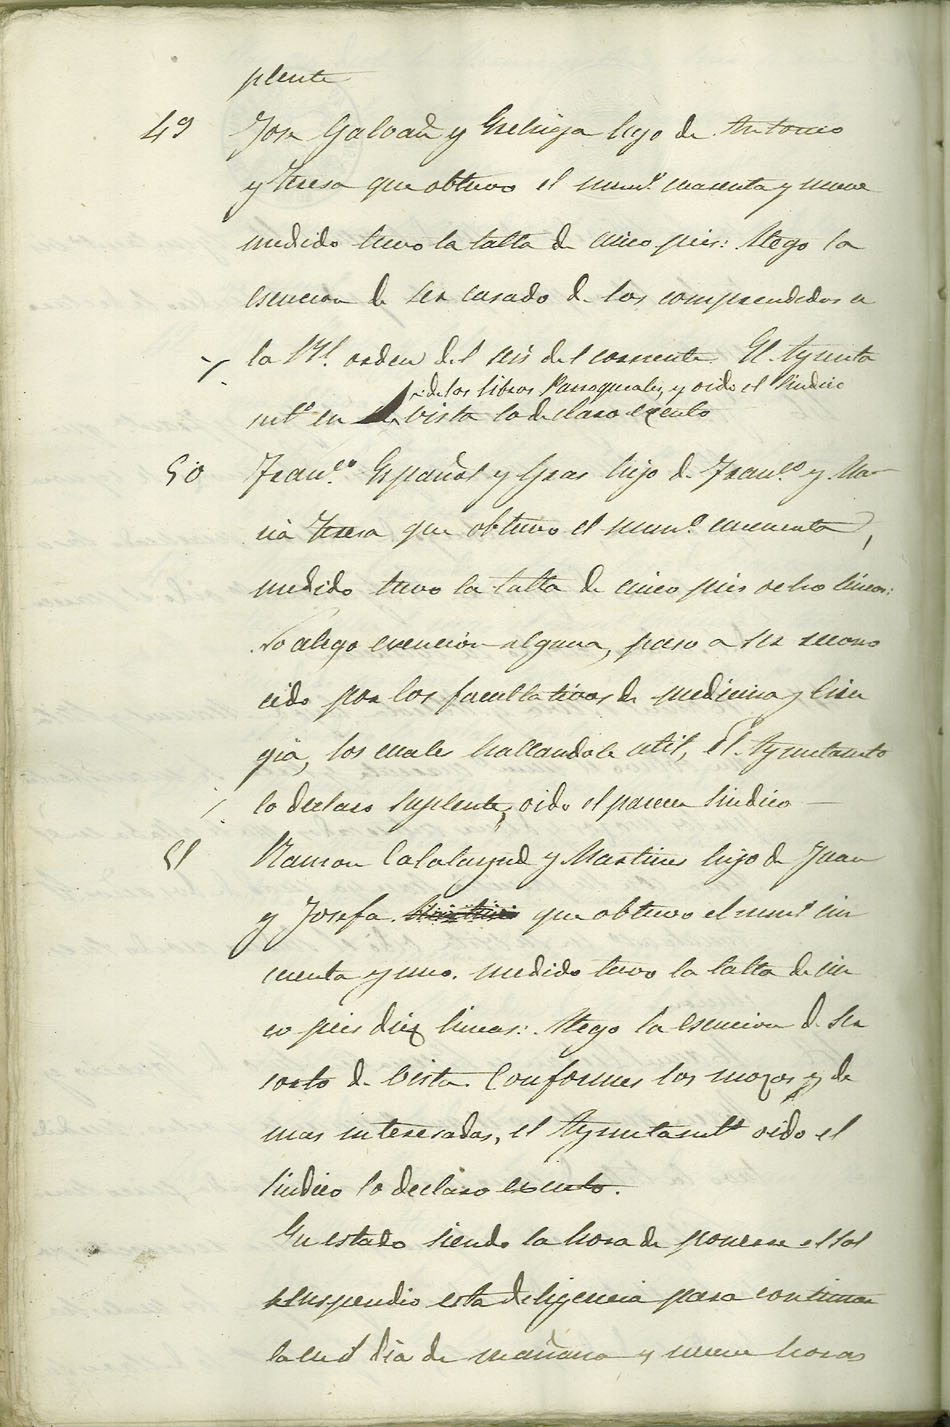 plente
49 Jose Galvañ y Grehiga hijo de Antonio
y Teresa que obtuvo el num.º cuarenta y nueve
medido tuvo la talla de cinco pies: Alego la
esencion de ser casado de los comprendidos en
la Rl. orden del seis del corriente. El Ayunta
de los libros Parroquiales, y oido el Sindico
mtº en vista lo declaro exento
50 Franco. Español y Gras hijo de Franco. y Ma
ria Teresa que obtuvo el num.º cincuenta,
medido tuvo la talla de cinco pies ocho lineas:
No alego exencion alguna, paso a ser recono
cido por los facultativos de medicina y ciru
gia, los cuales hallandole util, el Ayuntamto
lo declaro suplente, oido el parecer Sindico —
51 Ramon Calatayud y Martines hijo de Juan
y Josefa que obtuvo el numº cin
cuenta y uno. medido tuvo la talla de cin
co pies diez lineas: Alego la esencion de ser
corto de vista. Conformes los mozos y de
mas interesados, el Ayuntamtº oido el
Sindico lo declaro exento.
En estado siendo la hora de ponerse el Sol
se suspendio esta diligencia para continuar
la en el dia de mañana y nueve horas